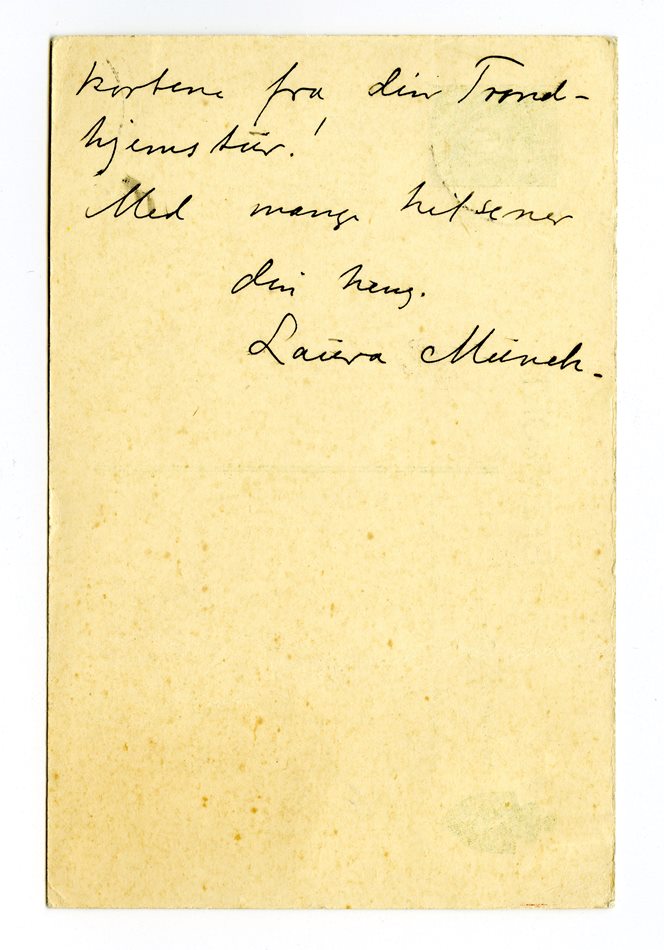 kortene fra din Trond-
hjemstur!
Med mange hilsener
din heng.
Laura Munch.